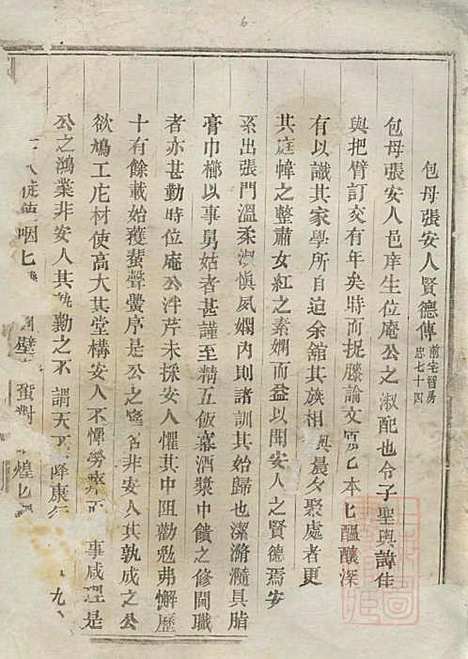 包母張安人賢德傳 前宅智房忠七十四
包母張安人邑庠生位庵公之淑配也令子聖與諱佳
與把臂訂交有年矣時而捉麈論文本匕醞釀深
有以識其家學所自迨余舘其族相與晨夕聚處者更
其庭幃之整肅女紅之素嫻而益以聞安人之賢德焉安
系出張門溫柔淑愼夙嫻內則諸訓其始歸也潔滫瀡具脂
膏巾櫛以事舅姑者甚謹至精五飯冪酒漿中饋之修間職
者亦甚勤時位庵公泮芹未採安人懼其中阻勸勉弗懈歷
十有餘載始獲蜚聲黌序是公之名非安人其孰成之公
欲鳩工庀材使高大其堂構安人不憚勞事咸理是
公之鴻業非安人其勤之不謂天不降康
咽匕壁蛩對煌匕